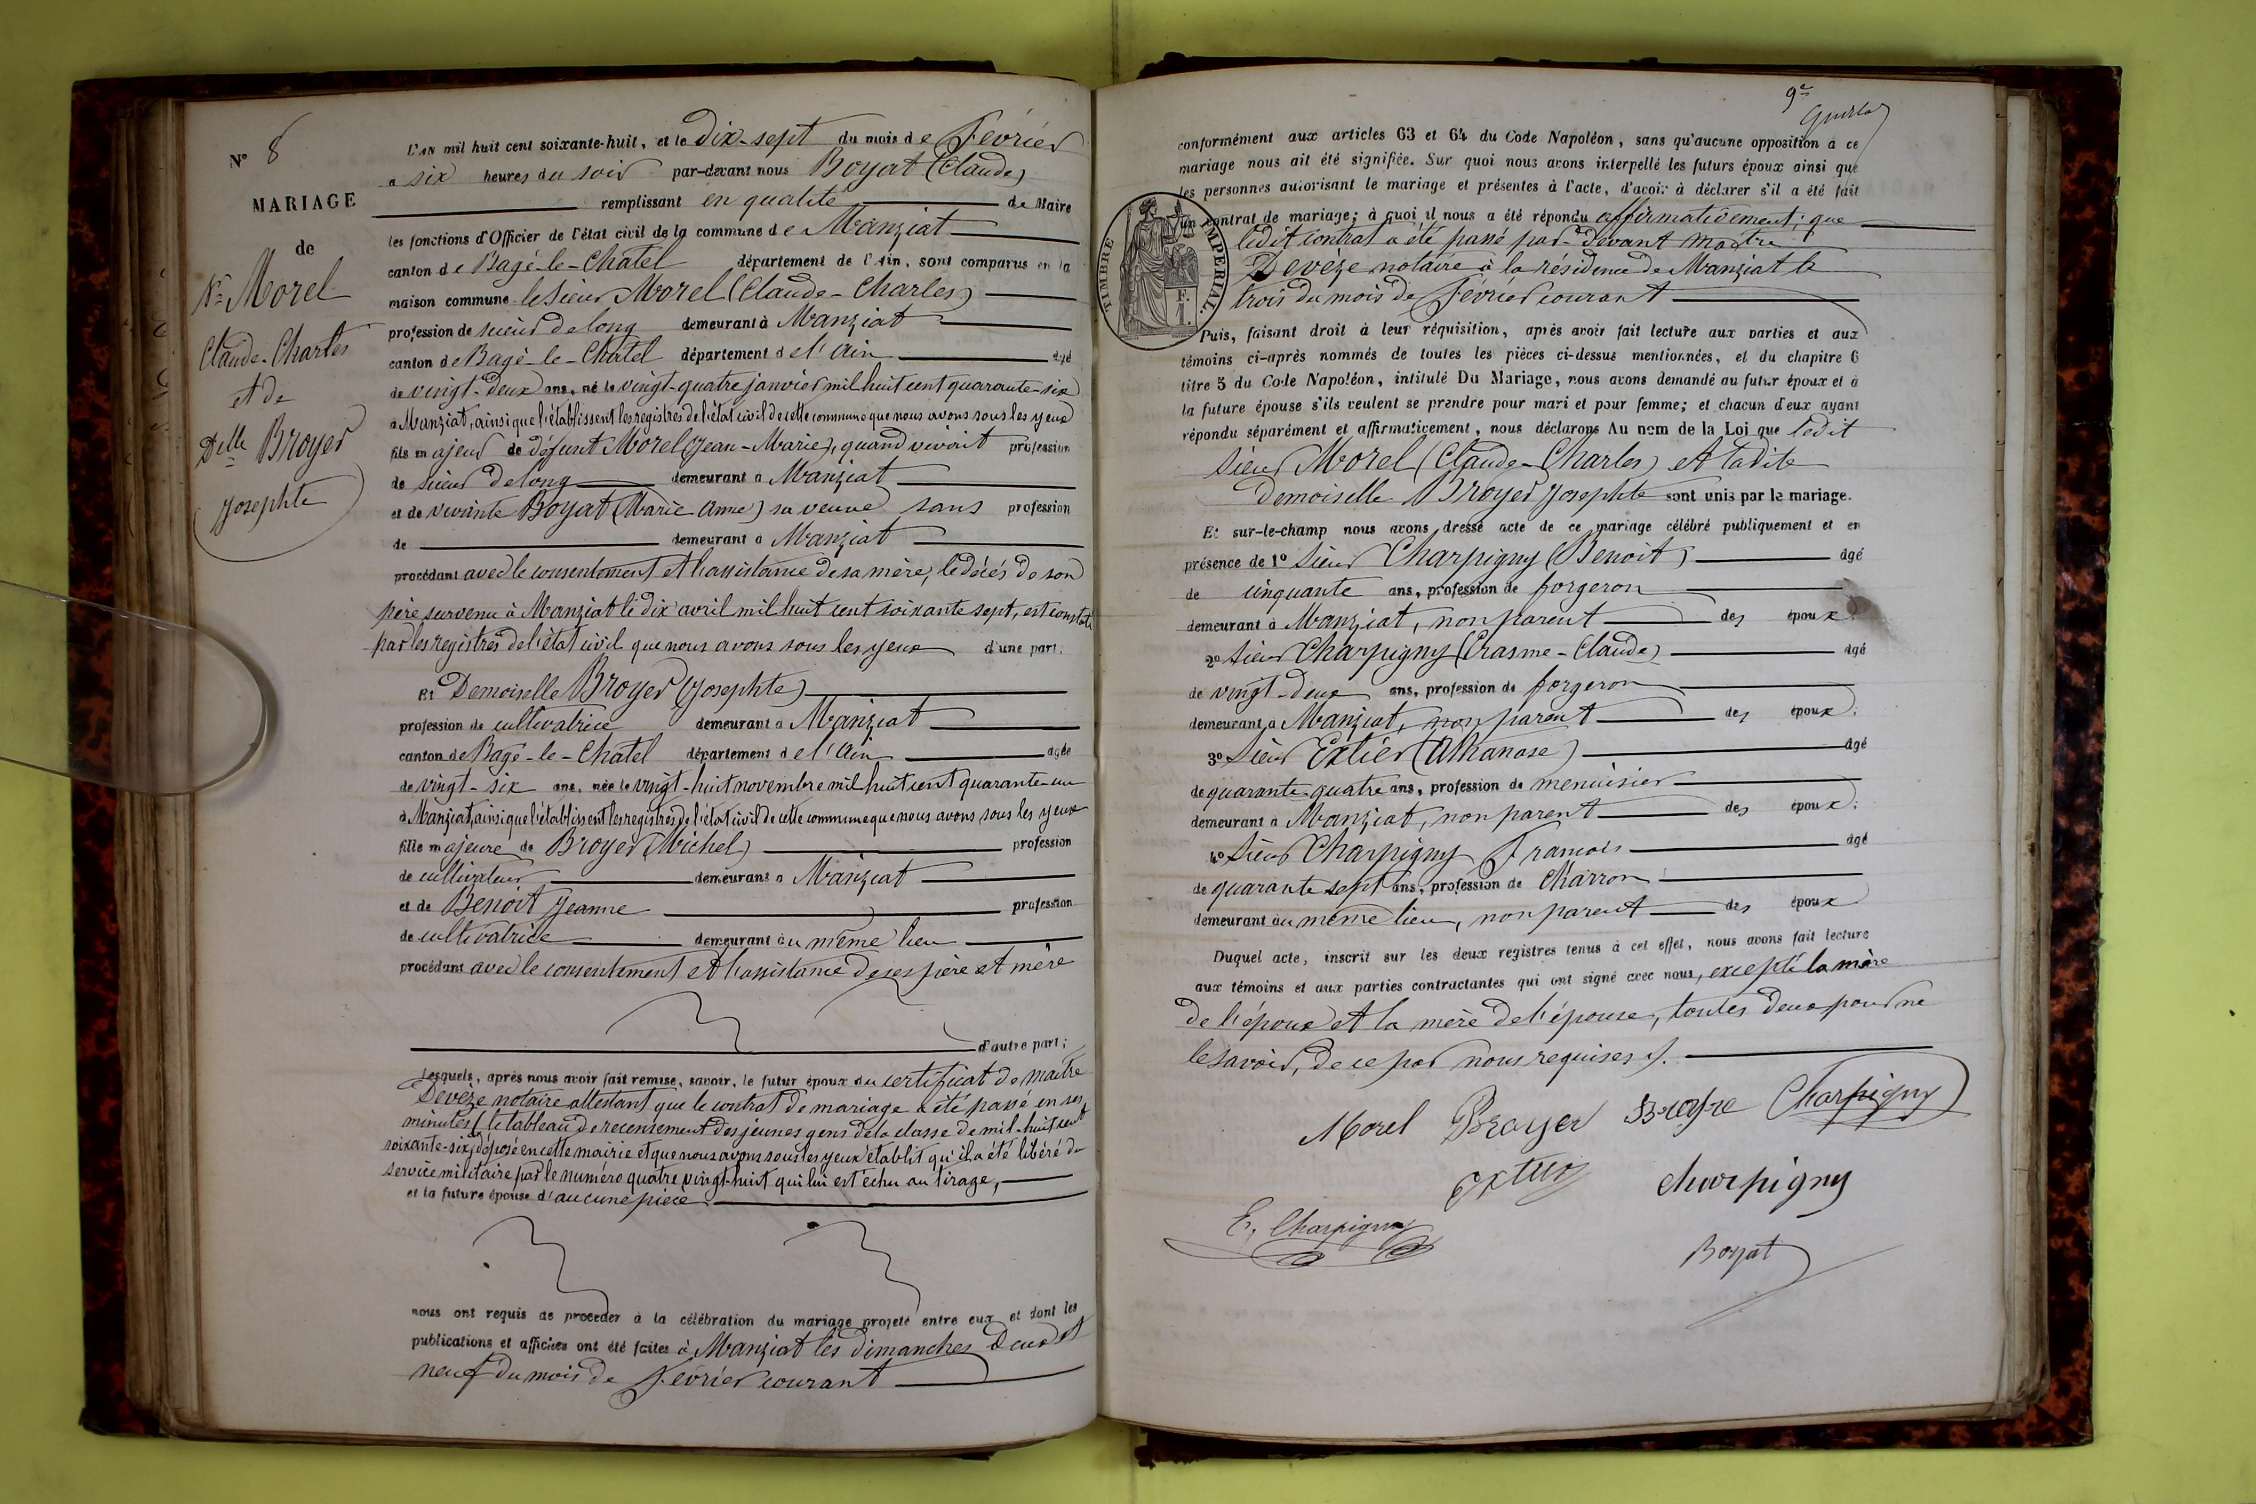 N° 8
MARIAGE
de
Sr Morel
Claude-Charles
et de
Delle Broyer
Josephte
L'AN mil huit cent soixante-huit, et le Dix-sept du mois de Février
a six heures du soir par-devant nous Boyat (Claude)
remplissant en qualité de Maire
les fonctions d'Officier de l'état civil de la commune de Manziat
canton de Bagé-le-Chatel département de l'Ain, sont comparus en la
maison commune le sieur Morel (Claude-Charles)
profession de scieur de long demeurant à Manziat
canton de Bagé-le-Chatel département de l'Ain âgé
de vingt-deux ans, né le vingt-quatre janvier mil huit cent quarante-six
à Manziat, ainsi que l'établissent les registres de l'état civil de cette commune que nous avons sous les yeux
fils majeur de défunt Morel (Jean-Marie), quand vivait profession
de scieur de long demeurant à Manziat
et de vivante Boyat (Marie Anne) sa veuve sans profession
de demeurant à Manziat
procédant avec le consentement et l'assistance de sa mère, le décès de son
père survenu à Manziat le dix avril mil huit cent soixante sept, est constaté
par les registres de l'état civil que nous avons sous les yeux d'une part.
Et Demoiselle Broyer (Josephte)
profession de cultivatrice demeurant à Manziat
canton de Bagé-le-Chatel département de l'Ain agée
de vingt-six ans, née le vingt-huit novembre mil huit cent quarante-un
à Manziat, ainsi que l'établissent les registres de l'état civil de cette commune que nous avons sous les yeux
fille majeure de Broyer (Michel) profession
de cultivateur demeurant à Manziat
et de Benoit Jeanne profession
de cultivatrice demeurant au même lieu
procédant avec le consentement et l'assistance de ses père et mère
d'autre part;
Lesquels, après nous avoir fait remise, savoir, le futur époux du certificat de maitre
Devèze notaire attestant que le contrat de mariage a été passé en ses
minutes, le tableau de recensement des jeunes gens de la classe de mil-huit cent
soixante-six, déposé en cette mairie et que nous avons sous les yeux établit qu'il a été libéré du
service militaire par le numéro quatre vingt-huit qui lui est échu au tirage,
et la future épouse d'aucune pièce.
nous ont requis de proceder à la célébration du mariage projeté entre eux et dont les
publications et affiches ont été faites à Manziat les dimanches deux et
neuf du mois de Février courant
9e
conformément aux articles 63 et 64 du Code Napoléon, sans qu'aucune opposition à ce
mariage nous ait été signifiée. Sur quoi nous avons interpellé les futurs époux ainsi que
les personnes autorisant le mariage et présentes à l'acte, d'avoir à déclarer s'il a été fait
un contrat de mariage; à quoi il nous a été répondu affirmativement; que
ledit contrat a été passé par-devant maitre
Devèze notaire à la résidence de Manziat le
trois du mois de Février courant
TIMBRE IMPERIAL.
F.
1.
Puis, faisant droit à leur réquisition, après avoir fait lecture aux parties et aux
témoins ci-après nommés de toutes les pièces ci-dessus mentionnées, et du chapitre 6
titre 5 du Code Napoléon, intitulé Du Mariage, nous avons demandé au futur époux et à
la future épouse s'ils veulent se prendre pour mari et pour femme; et chacun d'eux ayant
répondu séparément et affirmativement, nous déclarons Au nom de la Loi que ledit
sieur Morel (Claude-Charles) et ladite
demoiselle Broyer Josephte sont unis par le mariage.
Et sur-le-champ nous avons dressé acte de ce mariage célébré publiquement et en
présence de 1° sieur Charpigny (Benoit) âgé
de cinquante ans, profession de forgeron
demeurant à Manziat, non parent des époux.
2° sieur Charpigny (Erasme-Claude) âgé
de vingt-deux ans, profession de forgeron
demeurant à Manziat, non parent des époux.
3° sieur Extier (Athanase) âgé
de quarante-quatre ans, profession de menuisier
demeurant à Manziat, non parent des époux.
4° sieur Charpigny François âgé
de quarante sept ans, profession de charron
demeurant au même lieu, non parent des époux
Duquel acte, inscrit sur les deux registres tenus à cet effet, nous avons fait lecture
aux témoins et aux parties contractantes qui ont signé avec nous, excepté la mère
de l'époux et la mère de l'épouse, toutes deux pour ne
le savoir, de ce par nous requises.
Morel Broyer Broyre Charpigny
Extier Charpigny
E. Charpigny
Boyat